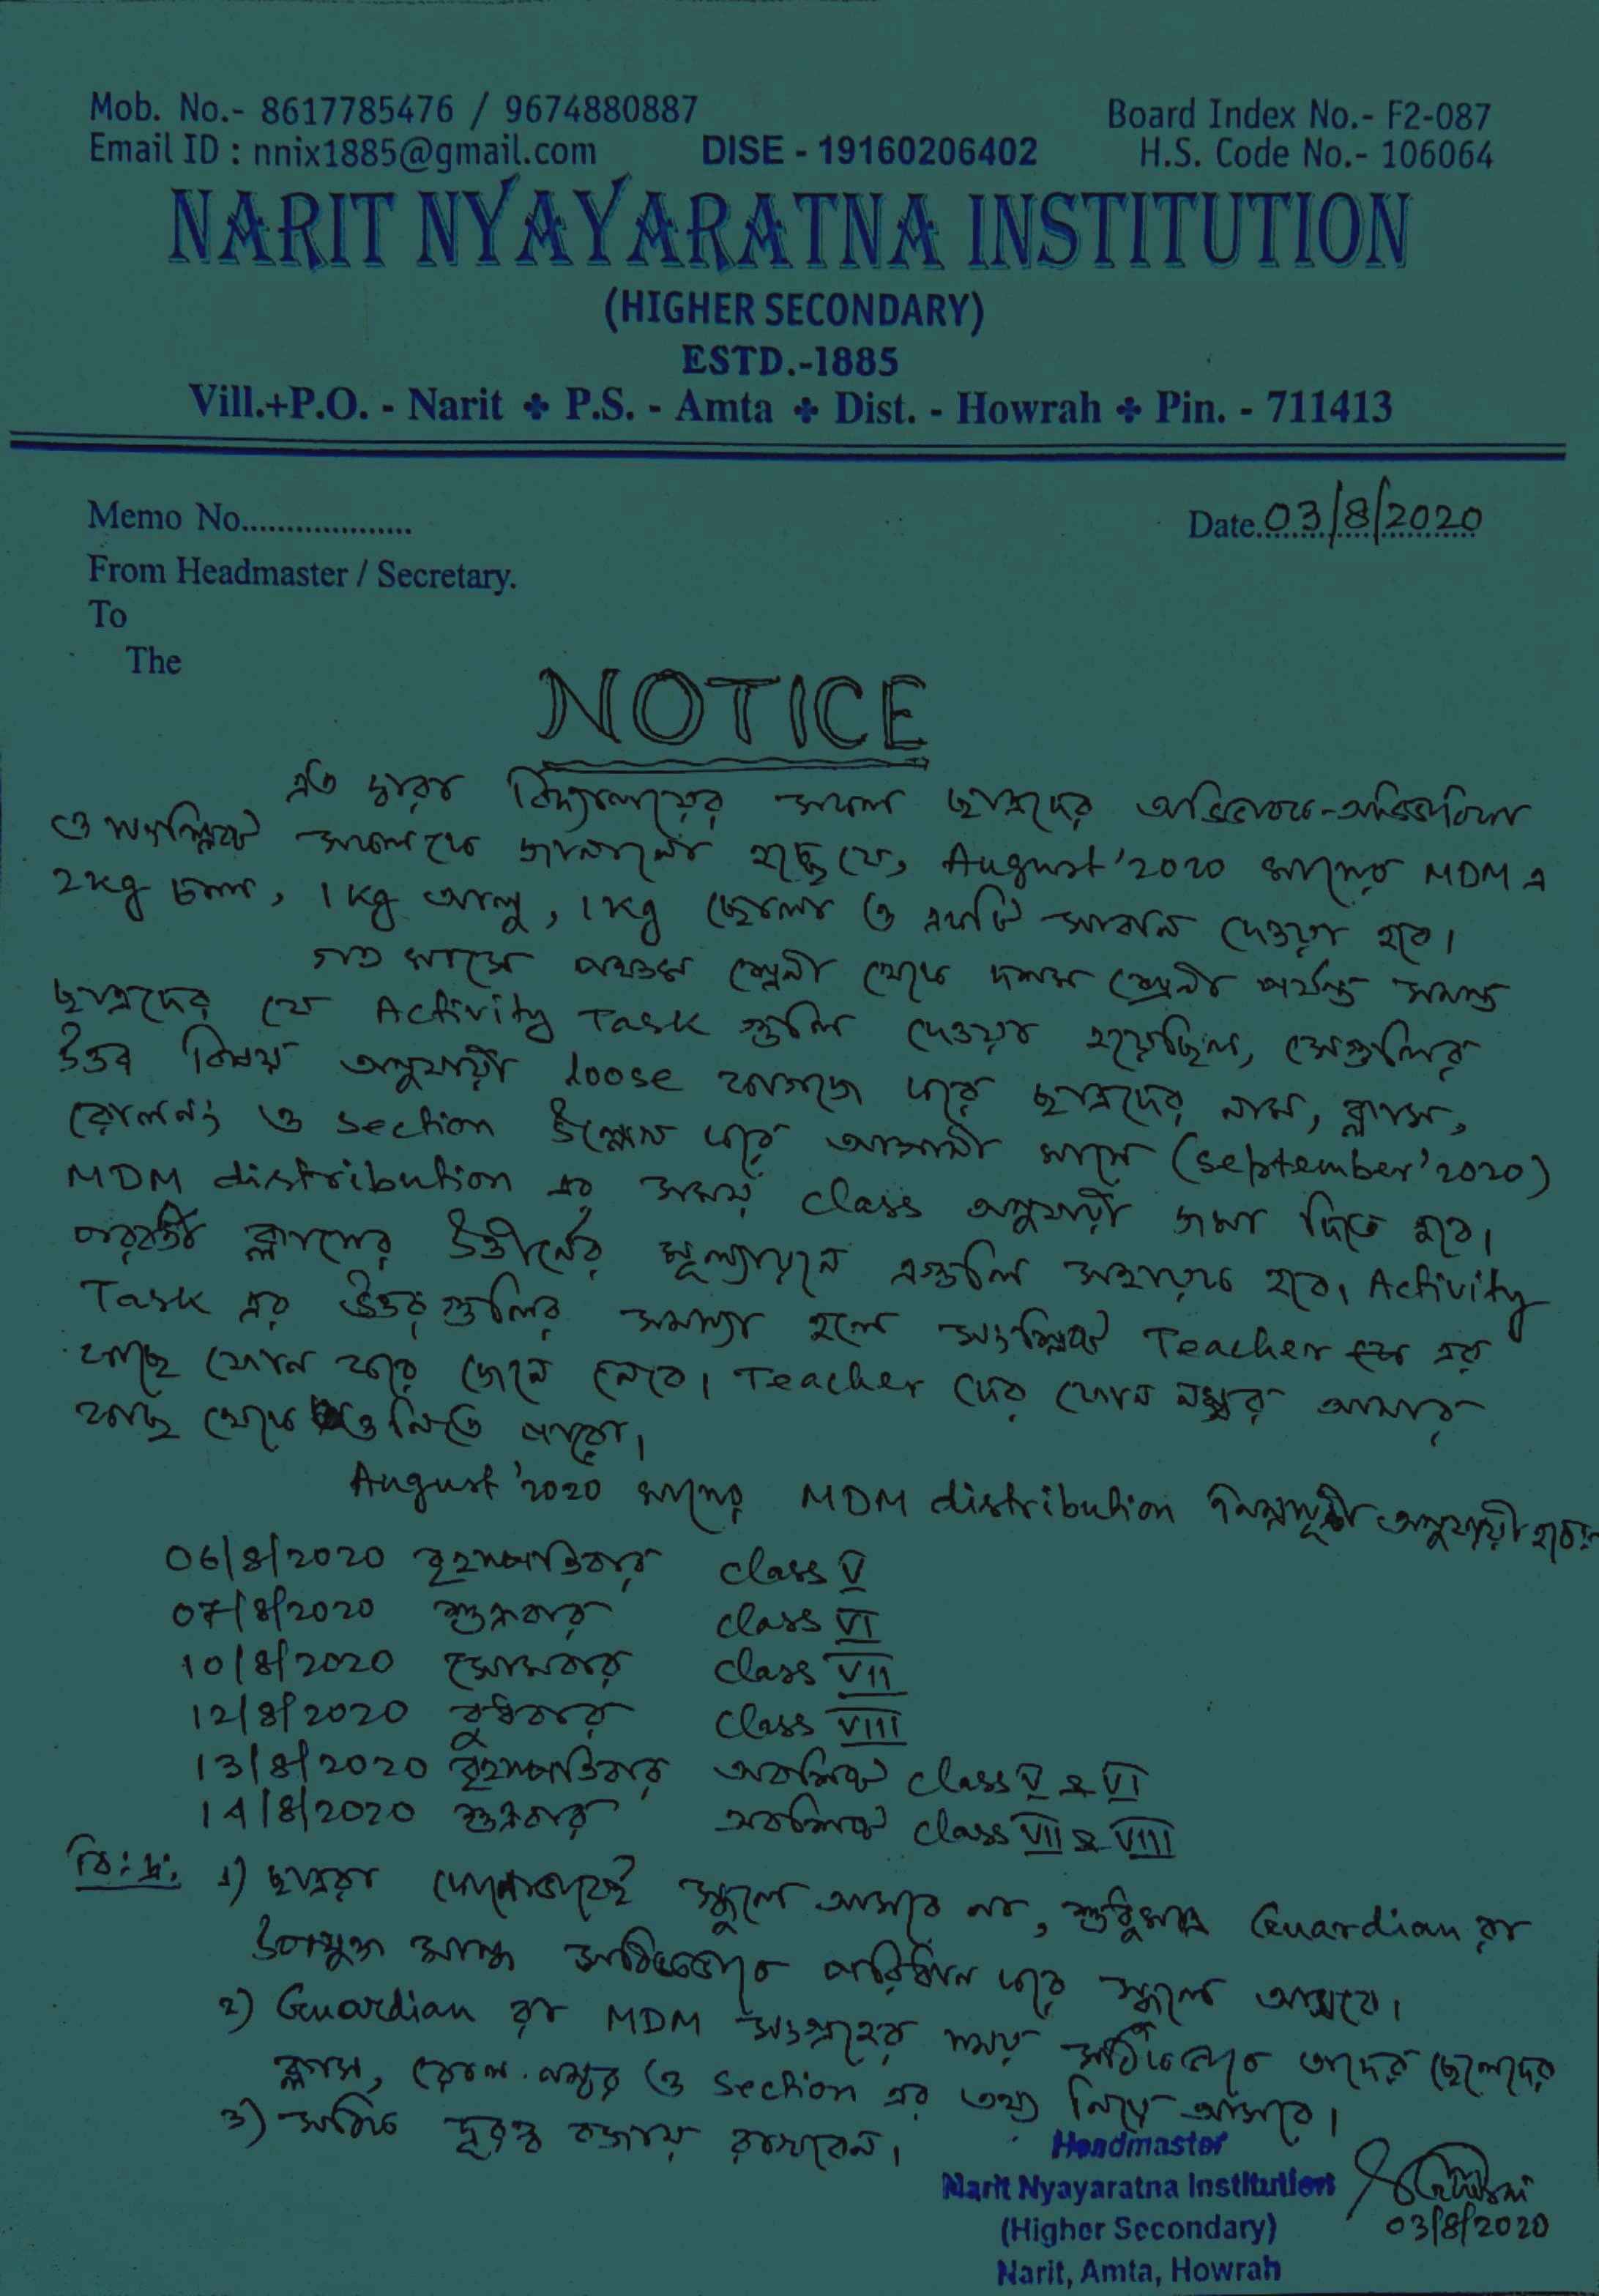 Mob. No.- 8617785476 / 9674880887
Board Index No.- F2-087
Email ID : nnix1885@gmail.com
DISE - 19160206402
H.S. Code No.- 106064
NARIT NYAYARATNA INSTITUTION
(HIGHER SECONDARY)
ESTD.-1885
Vill.+P.O. - Narit ✤ P.S. - Amta ✤ Dist. - Howrah ✤ Pin. - 711413
Memo No...................
Date.03/8/2020
From Headmaster / Secretary.
To
The
NOTICE
এত দ্বারা বিদ্যালয়ের সকল ছাত্রদের অভিভাবক-অভিভাবিকা
ও সংশ্লিষ্ট সকলকে জানানো হচ্ছে যে, August'2020 মাসের MDM এ
2kg চাল, 1kg আলু, 1kg ছোলা ও একটি সাবান দেওয়া হবে।
গত মাসে পঞ্চম শ্রেনী থেকে দশম শ্রেনী পর্যন্ত সমস্ত
ছাত্রদের যে Activity Task গুলি দেওয়া হয়েছিল, সেগুলির
উত্তর বিষয় অনুযায়ী loose কাগজে করে ছাত্রদের নাম, ক্লাস,
রোলনং ও section উল্লেখ করে আগামী মাসে (september'2020)
MDM distribution এর সময় class অনুযায়ী জমা দিতে হবে।
পরবর্তী ক্লাসের উত্তীর্নের মূল্যায়নে এগুলি সহায়ক হবে। Activity
Task এর উত্তর গুলির সমস্যা হলে সংশ্লিষ্ট Teacher এর
কাছে ফোন করে জেনে নেবে। Teacher দের ফোন নম্বর আমার
কাছ থেকেও নিতে পারো।
August'2020 মাসের MDM distribution নিম্নসূচী অনুযায়ী হবে:-
06/8/2020 বৃহস্পতিবার class V
07/8/2020 শুক্রবার class VI
10/8/2020 সোমবার class VII
12/8/2020 বুধবার class VIII
13/8/2020 বৃহস্পতিবার অবশিষ্ট class V & VI
14/8/2020 শুক্রবার অবশিষ্ট class VII & VIII
বি: দ্র: 1) ছাত্ররা কোনোভাবেই স্কুলে আসবে না, শুধুমাত্র Guardian রা
উপযুক্ত মাস্ক সঠিকভাবে পরিধান করে স্কুলে আসবে।
2) Guardian রা MDM সংগ্রহের সময় সঠিকভাবে তাদের ছেলেদের
ক্লাস, রোল নম্বর ও section এর তথ্য নিয়ে আসবে।
3) সঠিক দূরত্ব বজায় রাখবেন।
Headmaster
Narit Nyayaratna Institution
(Higher Secondary)
03/8/2020
Narit, Amta, Howrah